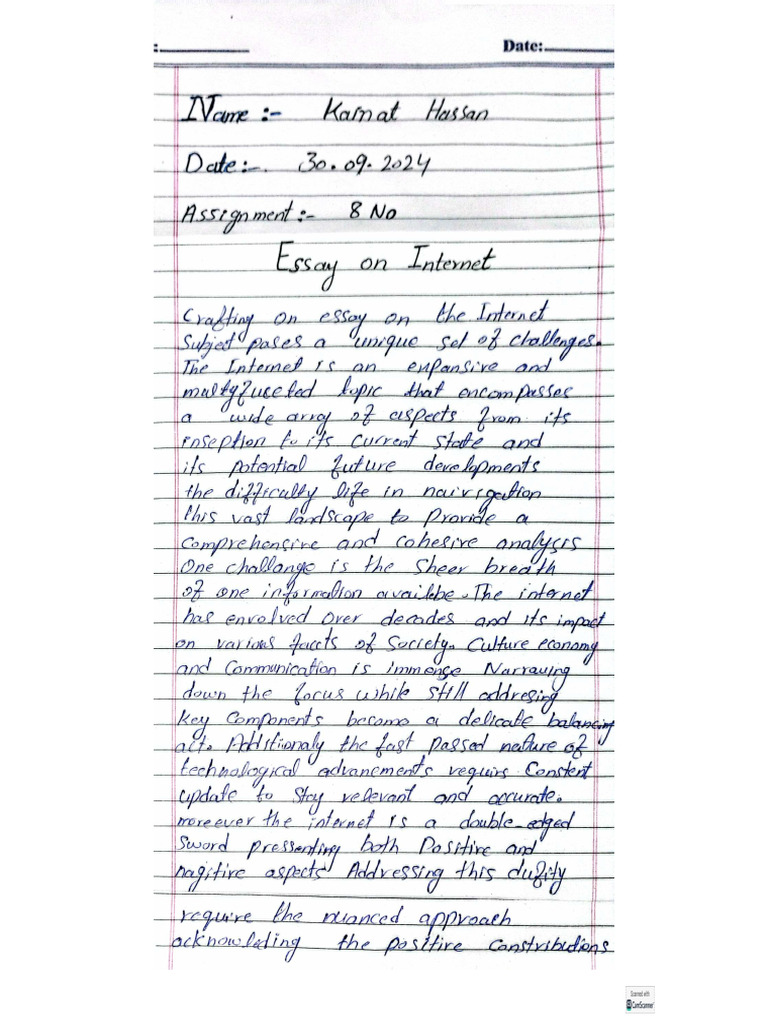 :________ Date:________
Name :- Kainat Hassan
Date:-. 30.09.2024
Assignment:- 8 No
Essay on Internet
Crafting on essay on the Internet
Subject pases a unique set of challenges.
The Internet is an expansive and
multyfuceted topic that encompasses
a wide array of aspects from its
inseption to its current state and
its potential future developments
the difficulty life in naivigation
this vast landscape to provide a
comprehensive and cohesive analysis
One challange is the sheer breath
of one information availbe. The internet
has envolved over decades and its impact
on various facets of Society. Culture economy
and Communication is immense Narrawing
down the focus while still addresing
key components become a delicate balancing
act. Additionaly the fast passed nature of
technological advancements requirs Constent
update to stay relevant and accurate.
moreever the internet is a double-edged
Sword pressenting both Positive and
nagitive aspects Addressing this duality
require the nuanced approach
acknowleding the positive constributions
Scanned with
CamScanner